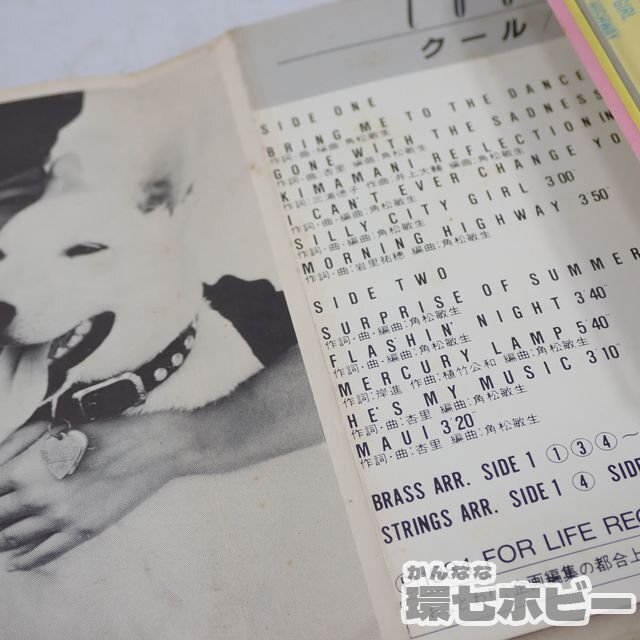 クール
SIDE ONE
BRING ME TO THE DANCE
作詞・曲・編曲:角松敏生
GONE WITH THE SADNESS
作詞・曲:杏里 編曲:角松敏生
KIMAMANI REFLECTION IN
作詞:三浦徳子 作曲:井上大輔 編曲:角松敏生
I CAN'T EVER CHANGE YO
作詞・曲・編曲:角松敏生
SILLY CITY GIRL 3'00"
作詞・曲・編曲:角松敏生
MORNING HIGHWAY 3'50"
作詞・曲:岩里祐穂 編曲:角松敏生
SIDE TWO
SURPRISE OF SUMMER
作詞・曲・編曲:角松敏生
FLASHIN' NIGHT 3'40"
作詞・曲・編曲:角松敏生
MERCURY LAMP 5'40"
作詞:岸進 作曲:植竹公和 編曲:角松敏生
HE'S MY MUSIC 3'10"
作詞・曲:杏里 編曲:角松敏生
MAUI 3'20"
作詞・曲:杏里 編曲:角松敏生
BRASS ARR. SIDE 1 ①③④〜
STRINGS ARR. SIDE 1 ④ SIDE
FOR LIFE REC
企画編集の都合上
GIRL
HIGHWAY
かんなな
環七ホビー